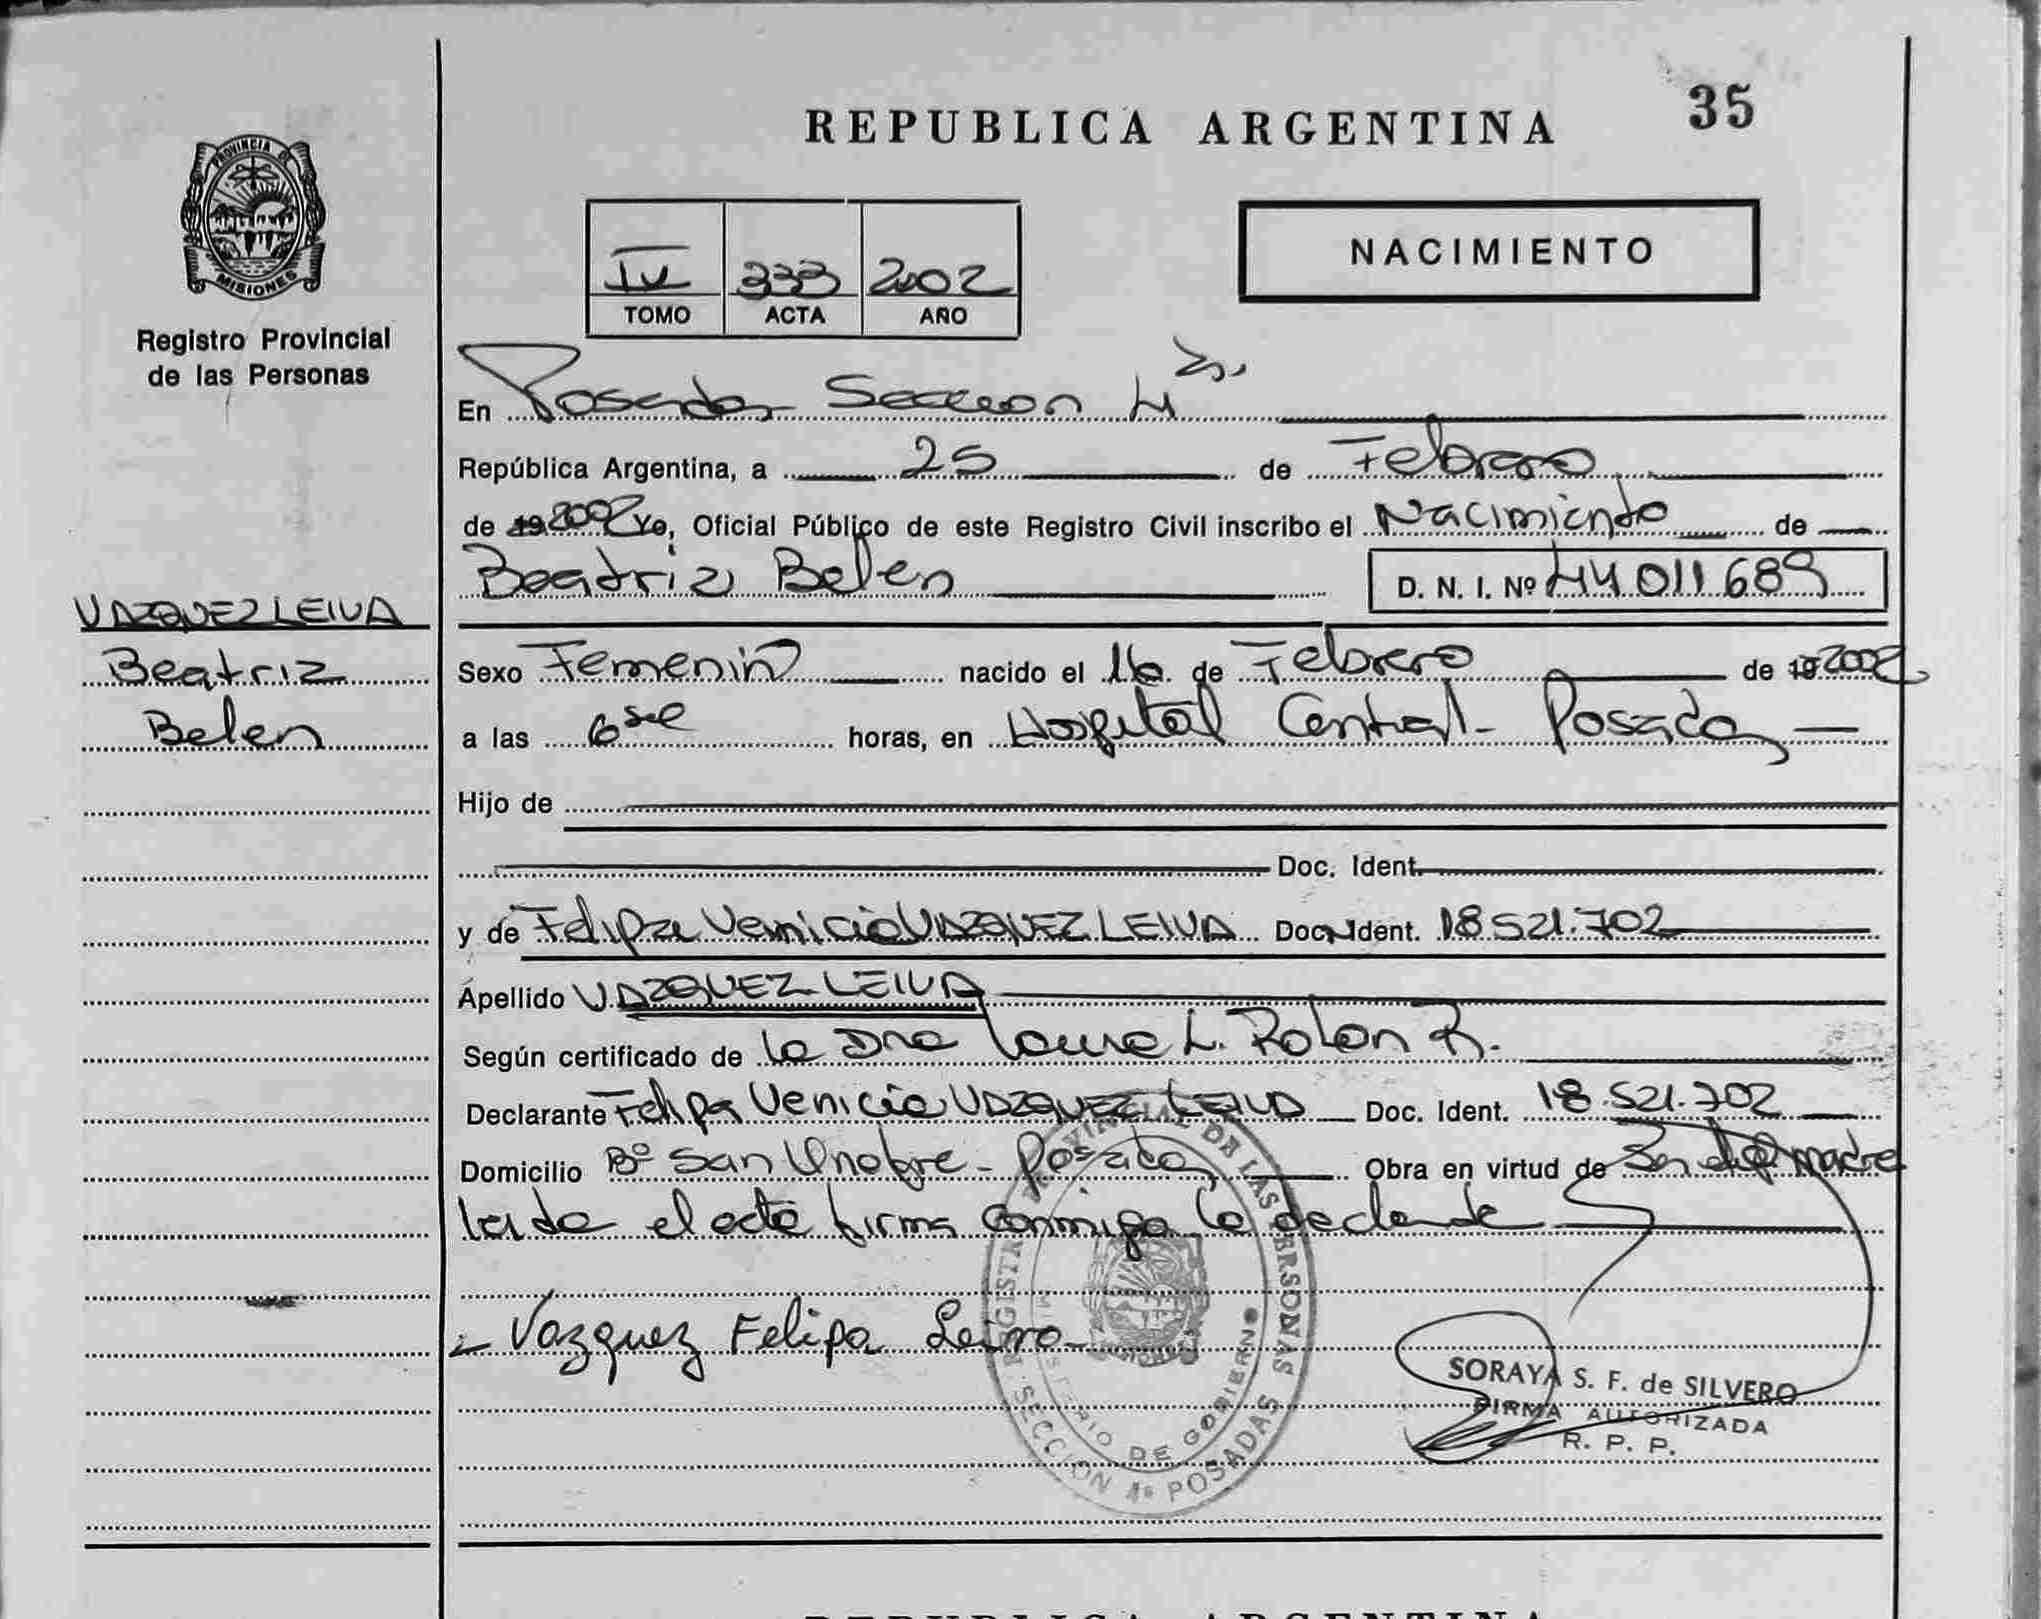 REPUBLICA ARGENTINA 35
PROVINCIA DE MISIONES
Registro Provincial
de las Personas
IV 333 2002
TOMO ACTA AÑO
NACIMIENTO
En Posadas Seccion 4
República Argentina, a 25 de Febrero
de 19 2002 Yo, Oficial Público de este Registro Civil inscribo el Nacimiento de
Beatriz Belen D. N. I. Nº 44.011.689
VAZQUEZ LEIVA
Beatriz
Belen
Sexo Femenino nacido el 16 de Febrero de 19 2002
a las 6 horas, en Hospital Central - Posadas
Hijo de
Doc. Ident.
y de Felipa Venicia VAZQUEZ LEIVA Doc. Ident. 18.521.702
Apellido VAZQUEZ LEIVA
Según certificado de la Dra Laura L. Rolon R.
Declarante Felipa Venicia VAZQUEZ LEIVA Doc. Ident. 18.521.702
Domicilio Bº San Onofre - Posadas Obra en virtud de Ser la madre
leida el acta firma conmigo la declarante
Vazquez Felipa Leiva
REGISTRO PROVINCIAL DE LAS PERSONAS
MINISTERIO DE GOBIERNO
SECCION 4ª POSADAS
SORAYA S. F. de SILVERO
FIRMA AUTORIZADA
R. P. P.
REPUBLICA ARGENTINA